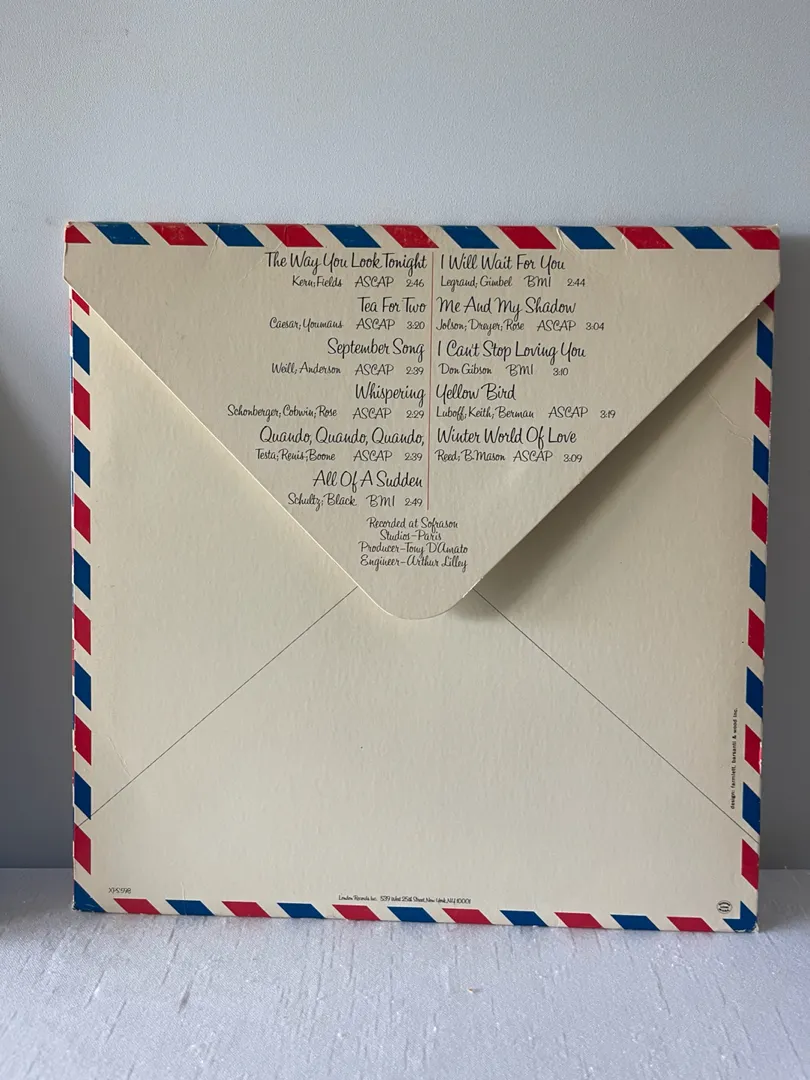 The Way You Look Tonight
Kern; Fields ASCAP 2:46
Tea For Two
Caesar; Youmans ASCAP 3:20
September Song
Weill; Anderson ASCAP 2:39
Whispering
Schonberger; Cobwin; Rose ASCAP 2:29
Quando, Quando, Quando,
Testa; Renis; Boone ASCAP 2:39
All Of A Sudden
Schultz; Black BMI 2:49
I Will Wait For You
Legrand; Gimbel BMI 2:44
Me And My Shadow
Jolson; Dreyer; Rose ASCAP 3:04
I Can't Stop Loving You
Don Gibson BMI 3:10
Yellow Bird
Luboff; Keith; Berman ASCAP 3:19
Winter World Of Love
Reed; B. Mason ASCAP 3:09
Recorded at Sofrason
Studios-Paris
Producer-Tony D'Amato
Engineer-Arthur Lilley
design: farmlett, barsanti & wood inc.
XPS 598
London Records Inc. 539 West 25th Street, New York, N.Y. 10001